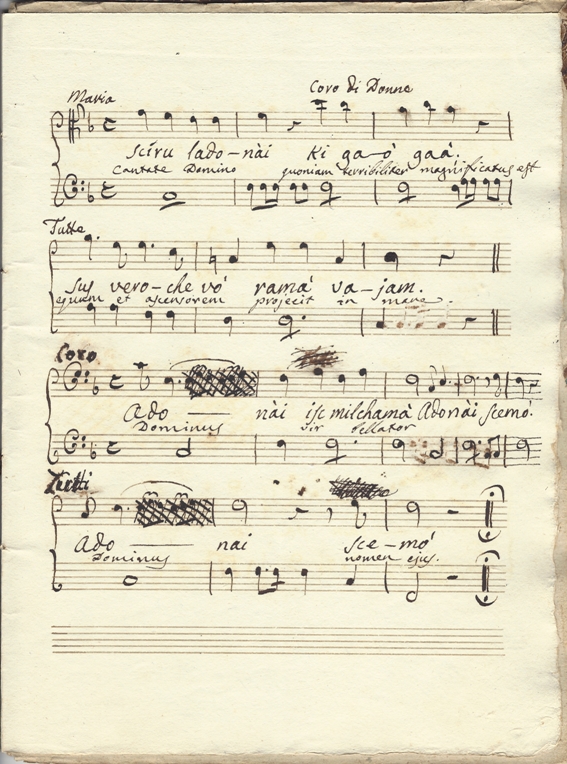 Maria
Coro di Donne
sciru lado-nài ki ga-ò gaà.
Cantate Domino quoniam terribiliter magnificatus est
Tutte
sus vero-che vò ramà va-jam.
equum et ascensorem projecit in mare.
Coro
Ado — nài isc milchamà Adonài scemò.
Dominus vir bellator
Tutti
Ado — nai sce-mò
Dominus nomen ejus.